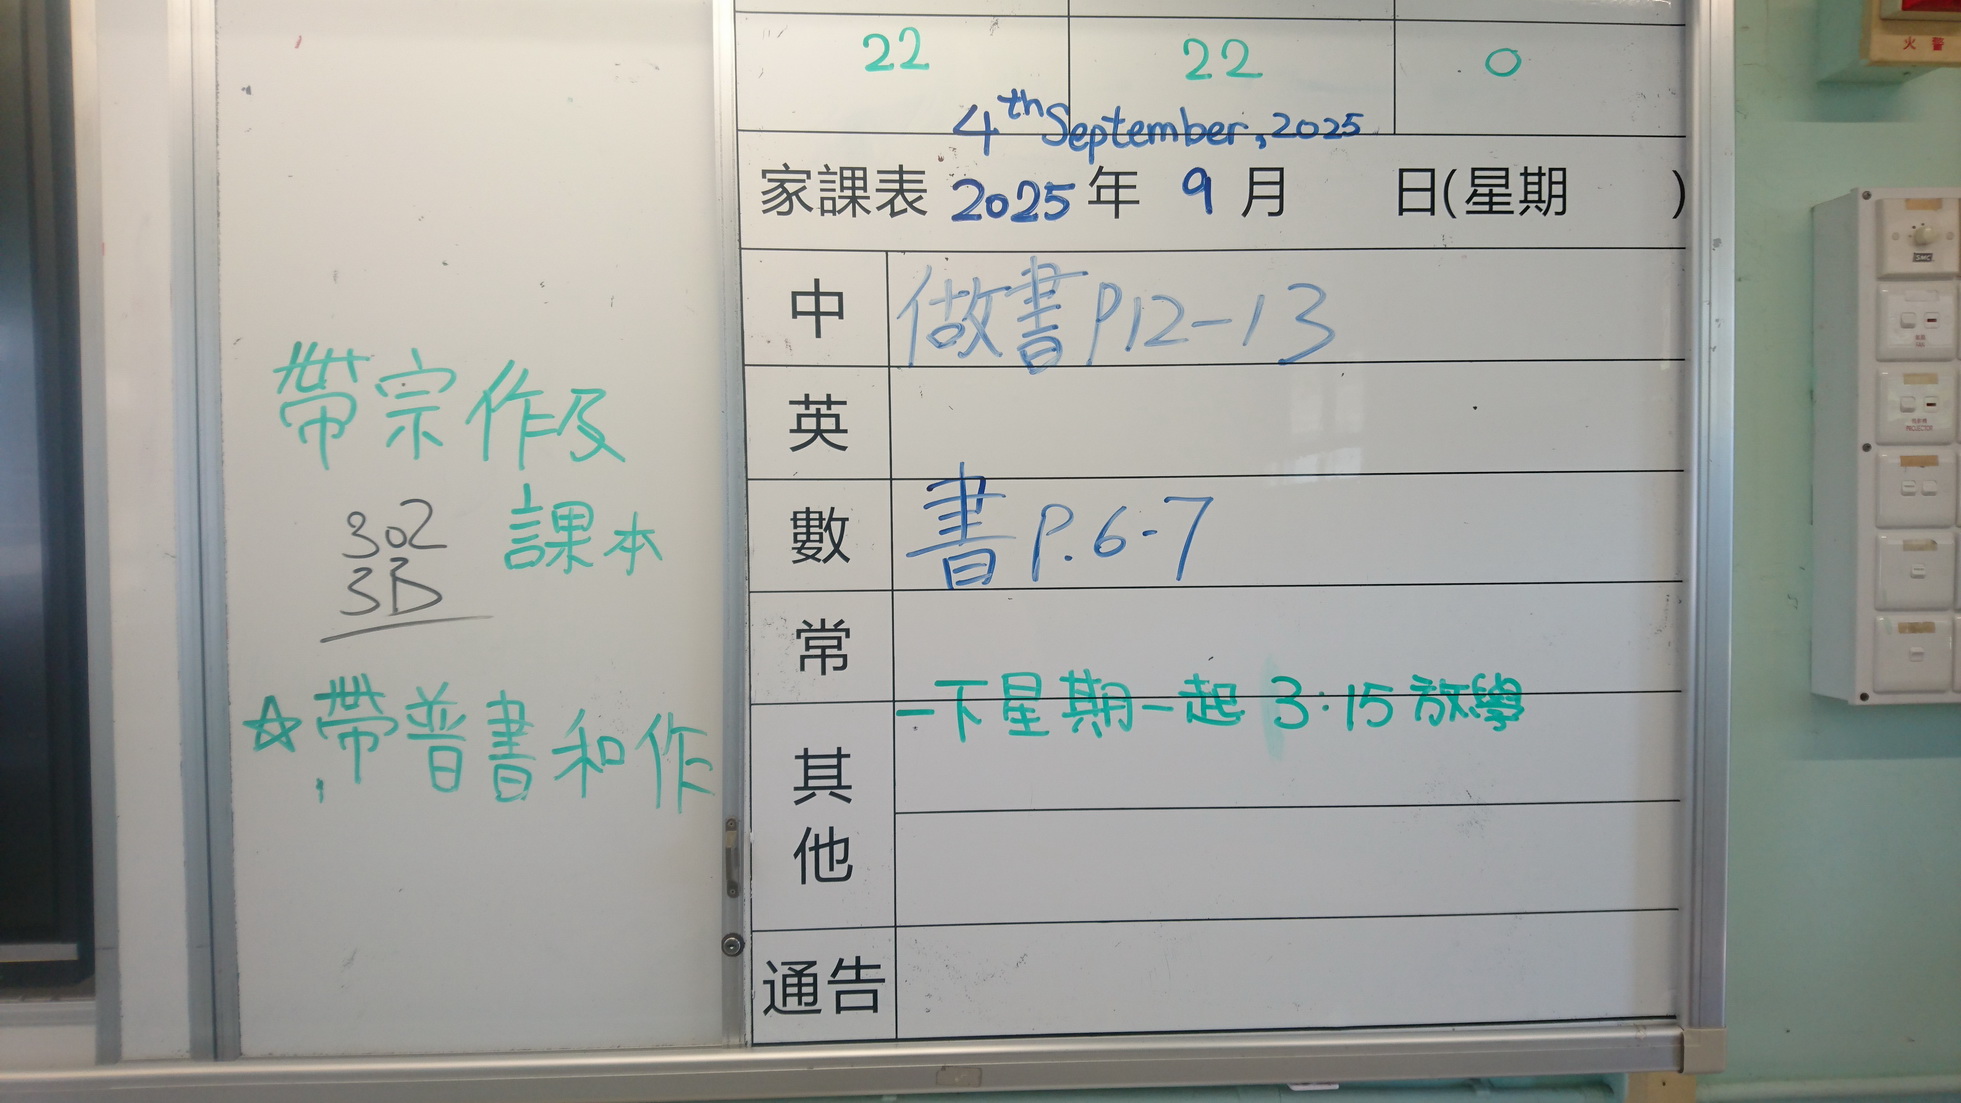 22 22 0
4th September, 2025
家課表 2025 年 9 月 日(星期 )
中 做書P12-13
英
數 書 P. 6-7
常
-下星期一起 3:15 放學
其他
通告
帶宗作及
課本
302
3B
☆帶普書和作
火 警
PROJECTOR